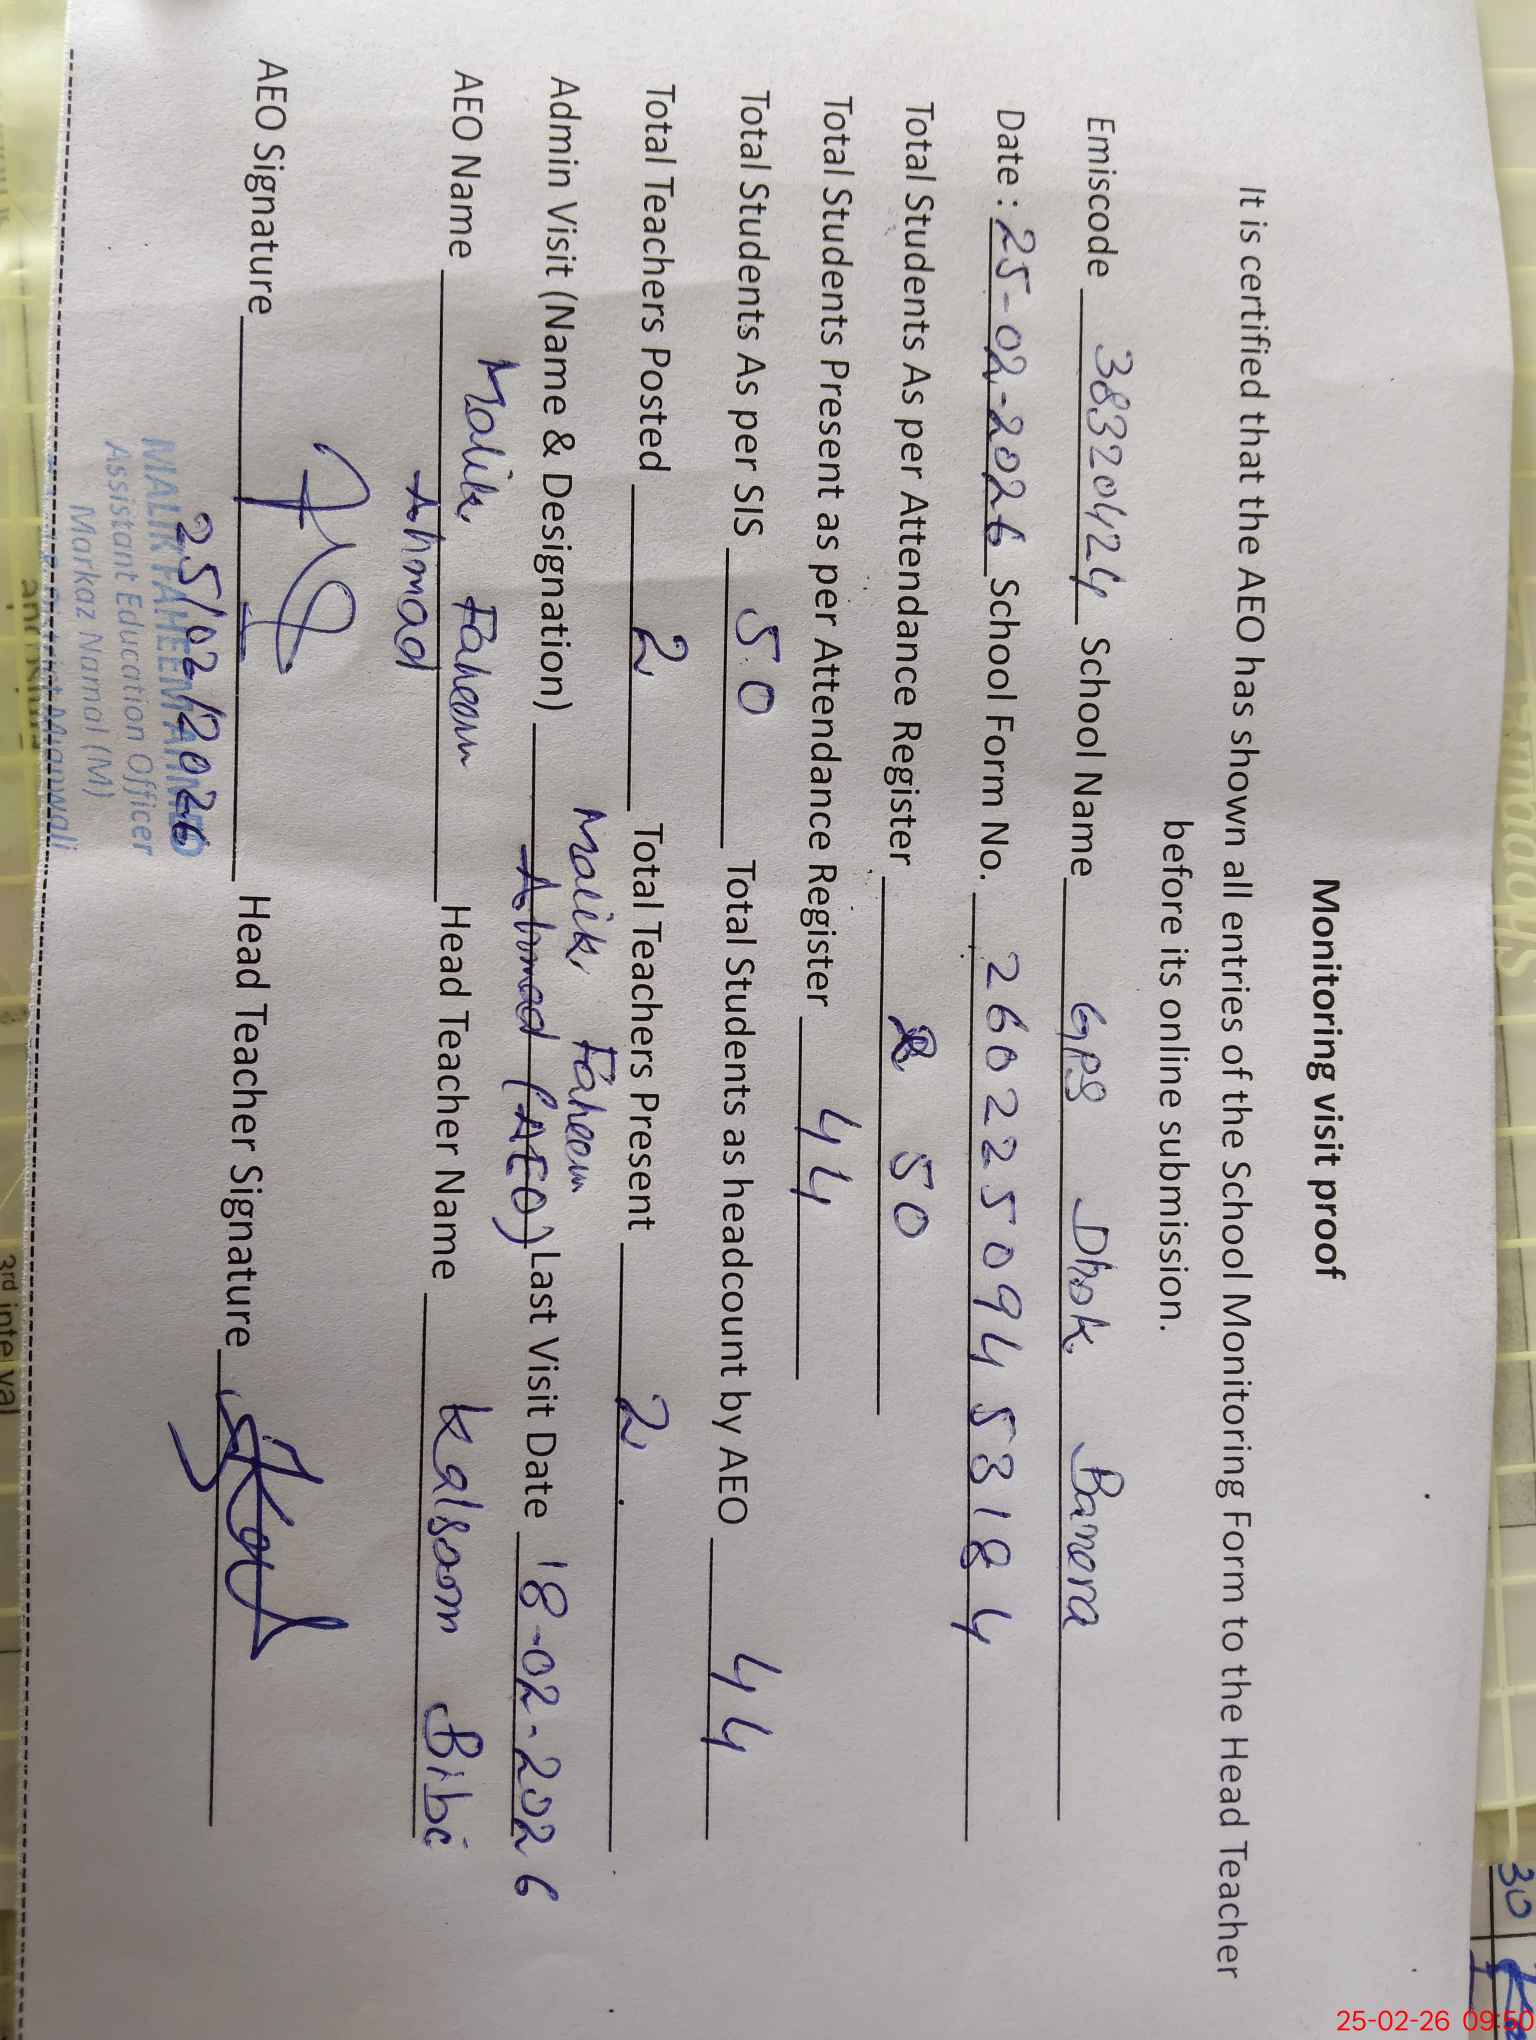 Monitoring visit proof
It is certified that the AEO has shown all entries of the School Monitoring Form to the Head Teacher
before its online submission.
Emiscode 38320424 School Name GPS Dhok Banera
Date : 25-02-2026 School Form No. 2602250945 8184
Total Students As per Attendance Register 50
Total Students Present as per Attendance Register 44
Total Students As per SIS 50 Total Students as headcount by AEO 44
Total Teachers Posted 2 Total Teachers Present 2
Admin Visit (Name & Designation) Malik Faheem Ahmad (AEO) Last Visit Date 18-02-2026
AEO Name Malik Faheem Ahmad Head Teacher Name Kalsoom Bibi
AEO Signature Head Teacher Signature
25/02/2026
MALIK FAHEEM AHMAD
Assistant Education Officer
Markaz Namal (M)
District Mianwali
3rd interval
30
25-02-26 09:50